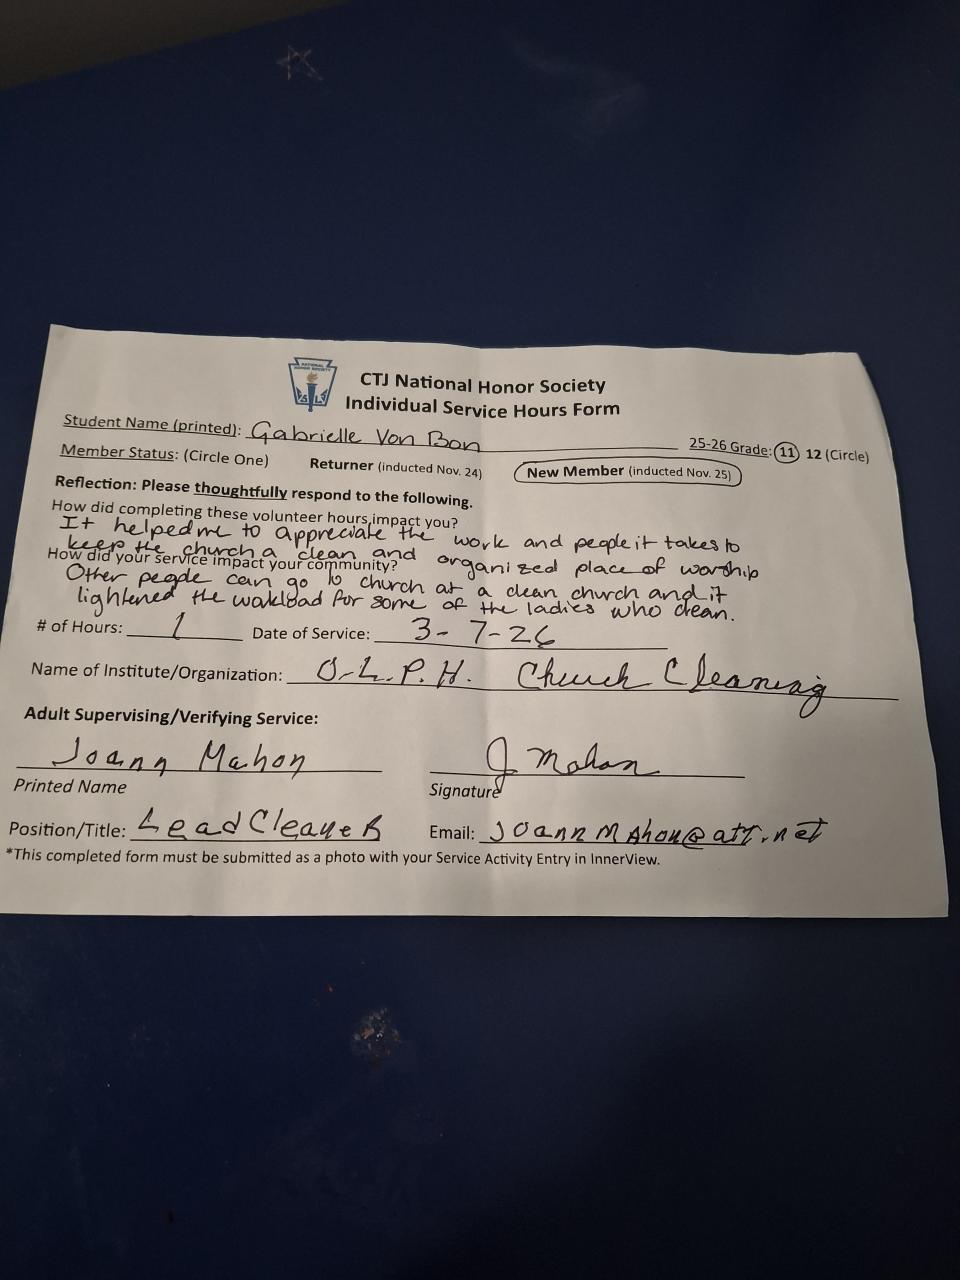 NATIONAL HONOR SOCIETY
CTJ National Honor Society
Individual Service Hours Form
Student Name (printed): Gabrielle Von Bon
25-26 Grade: 11 12 (Circle)
Member Status: (Circle One) Returner (inducted Nov. 24) New Member (inducted Nov. 25)
Reflection: Please thoughtfully respond to the following.
How did completing these volunteer hours impact you?
It helped me to appreciate the work and people it takes to
keep the church a clean and organized place of worship
How did your service impact your community?
Other people can go to church at a clean church and it
lightened the wokload for some of the ladies who clean.
# of Hours: 1 Date of Service: 3-7-26
Name of Institute/Organization: O.L.P.H. Church Cleaning
Adult Supervising/Verifying Service:
Joann Mahon J Mahon
Printed Name Signature
Position/Title: Lead Cleaner Email: JoannMahon@att.net
*This completed form must be submitted as a photo with your Service Activity Entry in InnerView.